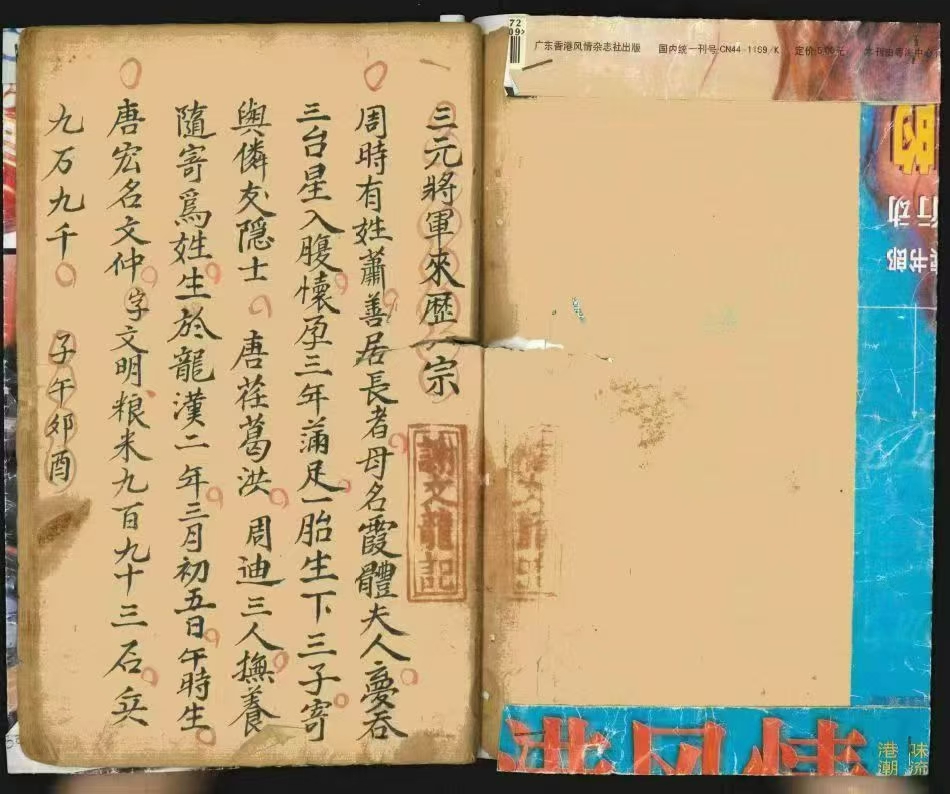 三元將軍來歷一宗
周時有姓蕭善居長者母名霞體夫人夢吞
三台星入腹懷孕三年滿足一胎生下三子寄
與憐友隱士 唐荏葛洪 周迪三人撫養
隨寄爲姓生於龍漢二年三月初五日午時生
唐宏名文仲字文明粮米九百九十三石兵
九万九千 子午卯酉
謝文龍記
广东香港风情杂志社出版 国内统一刊号CN44-1159/K 定价:5.00元
72
09
的
行动
书郎
港风情
味流
港潮